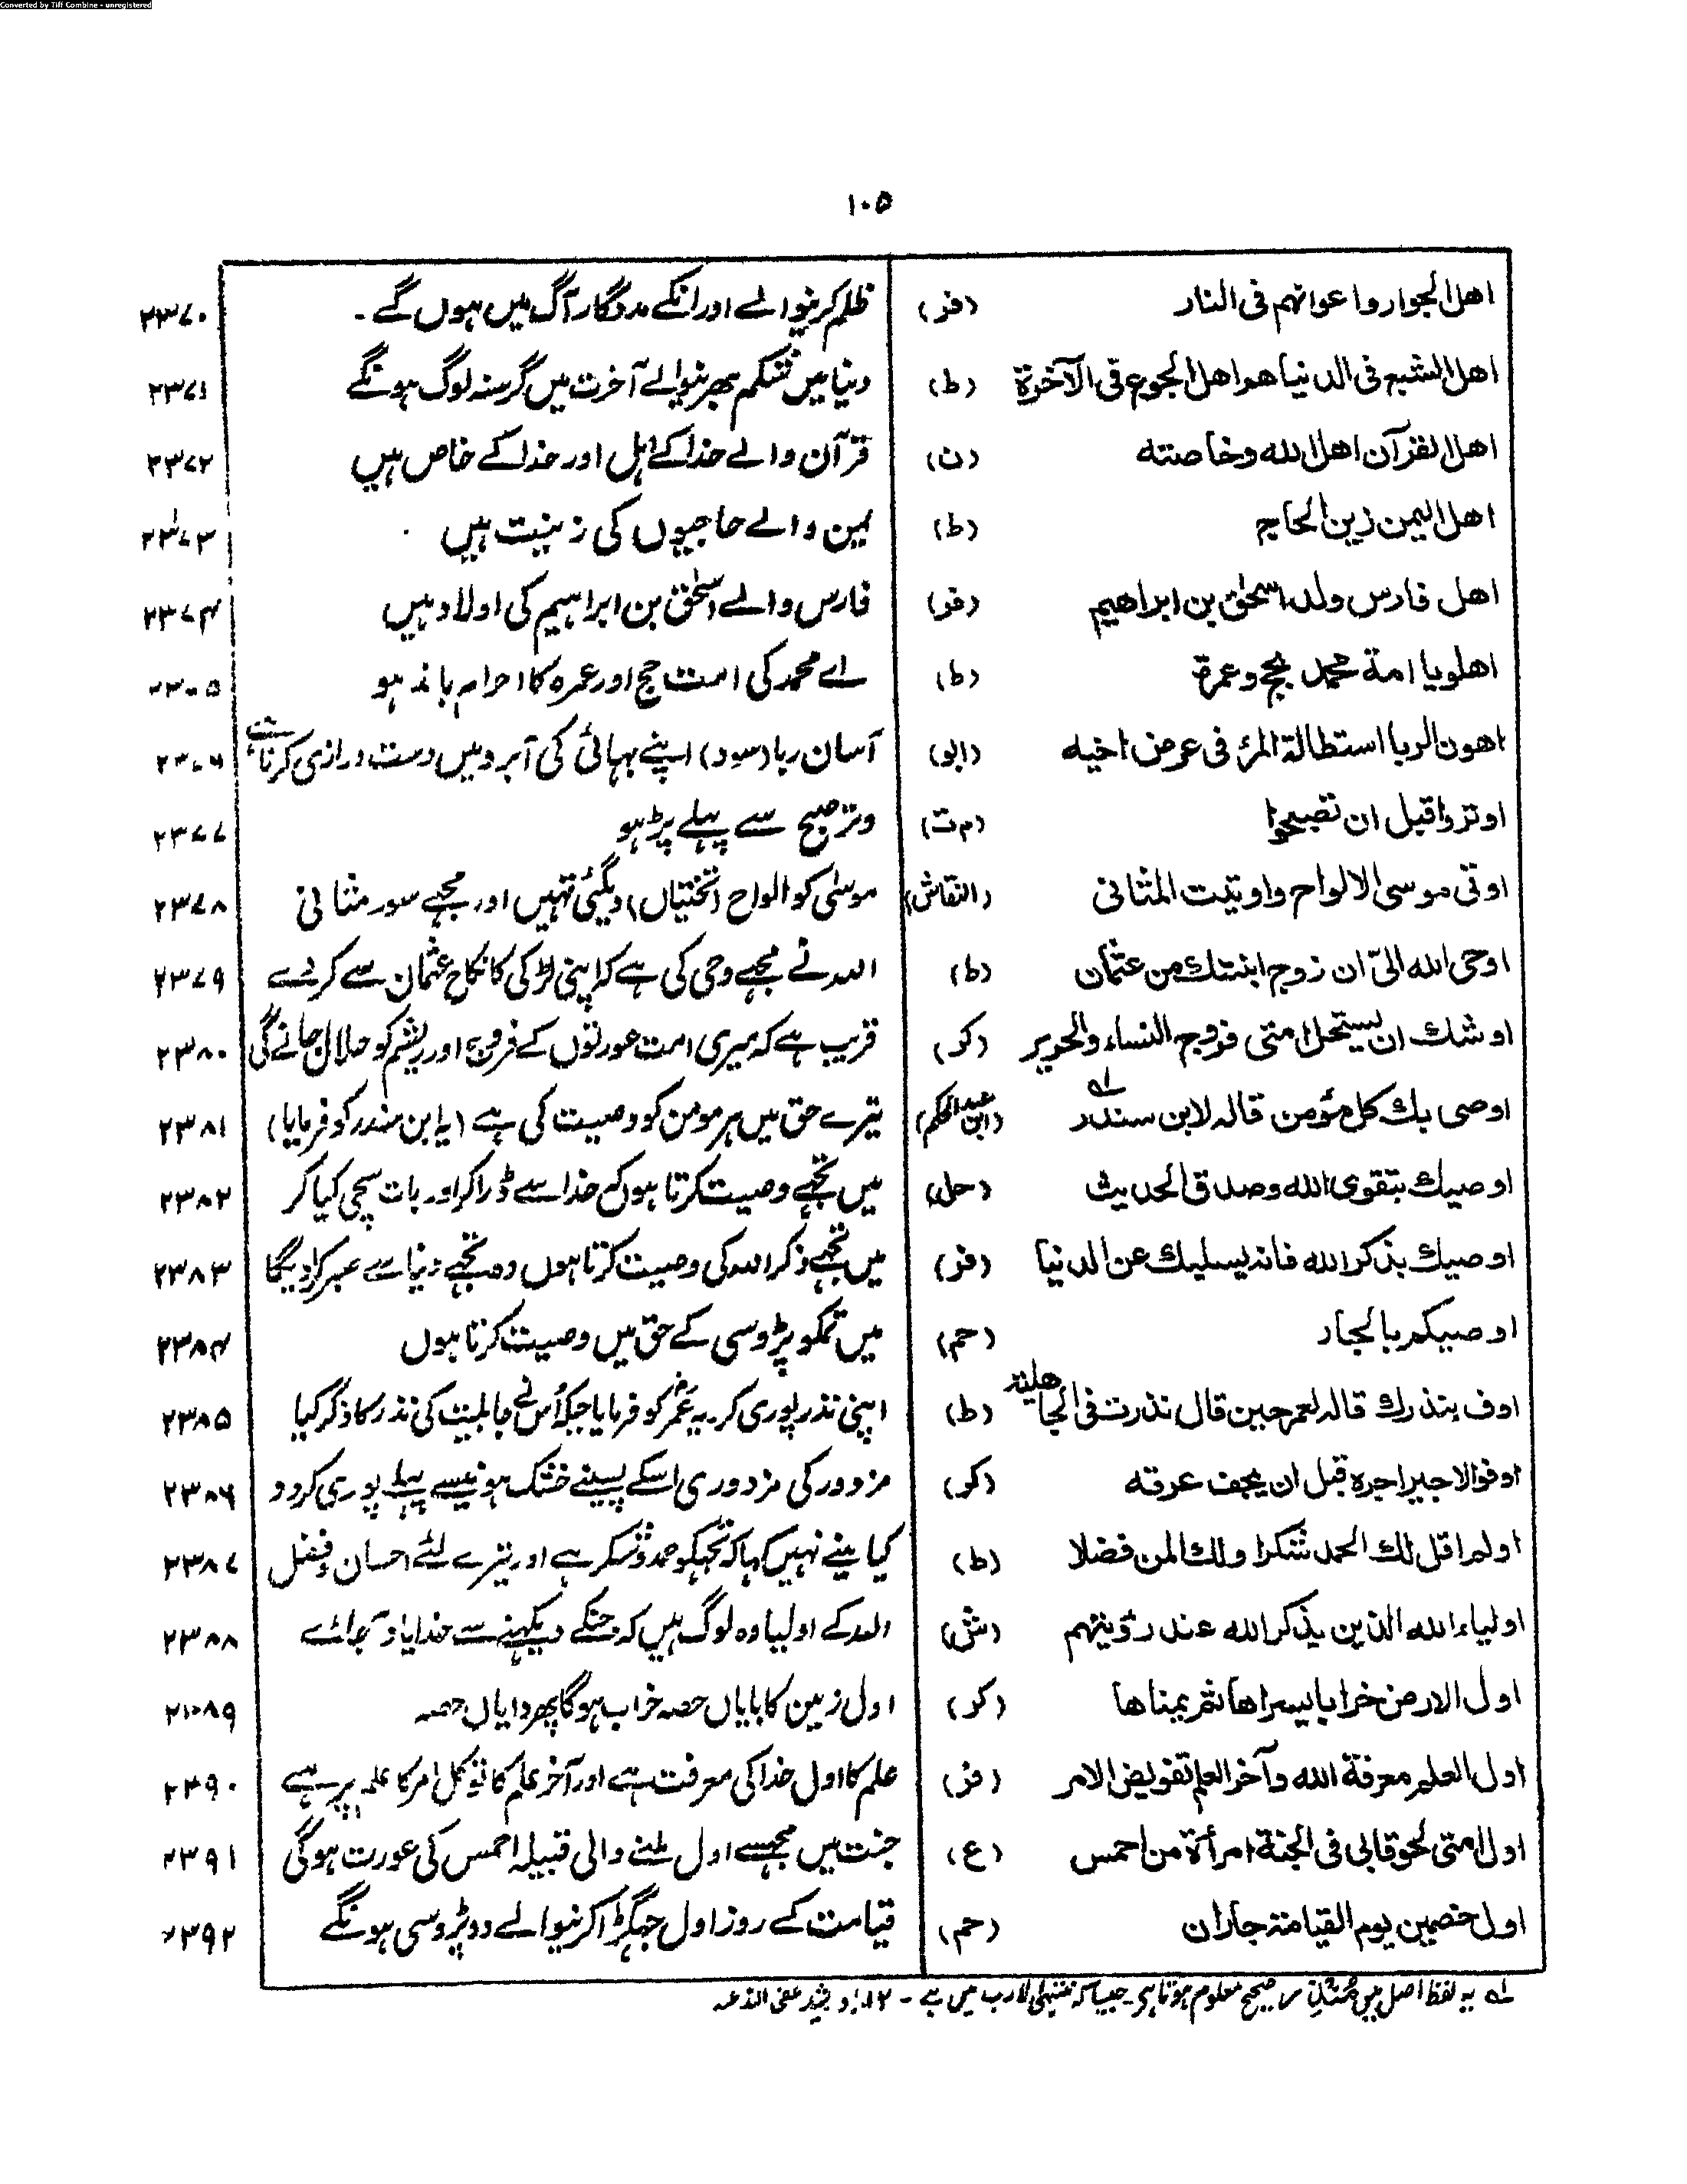 Converted by Tiff Combine - unregistered
۱۰۵
اهل الجوار واعوانهم فی النار (فر) ظلم کرنیوالے اور انکے مددگار آگ میں ہوں گے۔ ۲۳۷۰
اهل الشبع فی الدنیا هم اهل الجوع فی الآخرة (ط) دنیا میں شکم بھر نیوالے آخرت میں گرسنہ لوگ ہونگے ۲۳۷۱
اهل القرآن اهل الله وخاصته (ن) قرآن والے خدا کے اہل اور خدا کے خاص ہیں ۲۳۷۲
اهل الیمن زین الحاج (ط) یمن والے حاجیوں کی زینت ہیں ۲۳۷۳
اهل فارس ولد اسحٰق بن ابراهیم (فر) فارس والے اسحٰق بن ابراہیم کی اولاد ہیں ۲۳۷۴
اهلو یا امة محمد بحج وعمرة (ط) اے محمد کی امت حج اور عمرہ کا احرام باندہو
اهون الربا استطالة المرٔ فی عرض اخیه (ابو) آسان ربا (سود) اپنے بہائی کی آبرو میں دست درازی کرنا
اوتروا قبل ان تصبحوا (م ت) وتر صبح سے پہلے پڑہو ۲۳۷۷
اوتی موسی الالواح واوتیت المثانی (النقاش) موسٰی کو الواح (تختیاں) دیگئی تہیں اور مجہے سور مثانی ۲۳۷۸
اوحی الله الیّ ان زوج ابنتك من عثمان (ط) اللہ نے مجہے وحی کی ہے کہ اپنی لڑکی کا نکاح عثمان سے کر دے ۲۳۷۹
اوشك ان یستحل امتی فروج النساء والحریر (کر) قریب ہے کہ میری امت عورتوں کے فروج اور ریشم کو حلال جانے گی ۲۳۸۰
اوصی بك کل مؤمن قاله لابن سندر لہ (ابن عبد الحکم) تیرے حق میں ہر مومن کو وصیت کی ہے (یہ ابن سندر کو فرمایا) ۲۳۸۱
اوصیك بتقوی الله وصدق الحدیث (حل) میں تجہے وصیت کرتا ہوں کہ خدا سے ڈرا کر اور بات سچی کیا کر ۲۳۸۲
اوصیك بذکر الله فانه یسلیك عن الدنیا (فر) میں تجہے ذکر اللہ کی وصیت کرتا ہوں وہ تجہے دنیا سے ۲۳۸۳
اوصیکم بالجار (حم) میں تمکو پڑوسی کے حق میں وصیت کرتا ہوں ۲۳۸۴
اوف بنذرك قاله لعمر حین قال نذرت فی الجاهلیة (ط) اپنی نذر پوری کر۔ یہ عمرؓ کو فرمایا جبکہ اُس نے جاہلیت کی نذر کا ذکر کیا ۲۳۸۵
اوفوا الاجیر اجره قبل ان یجف عرقه (کر) مزدور کی مزدوری اسکے پسینے خشک ہونیسے پہلے پوری کر دو ۲۳۸۶
اولم اقل لك الحمد شکرا ولك المن فضلا (ط) کیا مینے نہیں کہا کہ تجہکو حمد و شکر ہے اور تیرے لئے احسان و فضل ۲۳۸۷
اولیاء الله الذین یذکر الله عند رؤیتهم (ش) اللہ کے اولیا وہ لوگ ہیں کہ جنکے دیکہنے سے خدا یاد آ جائے ۲۳۸۸
اول الارض خرابا یسراها ثم یمناها (کر) اول زمین کا بایاں حصہ خراب ہوگا پھر دایاں حصہ ۲۳۸۹
اول العلم معرفة الله وآخر العلم تفویض الامر (فر) علم کا اول خدا کی معرفت ہے اور آخر علم کا ۲۳۹۰
اول امتی لحوقا بی فی الجنة امرأة من احمس (ع) جنت میں مجہسے اول ملنے والی قبیلہ احمس کی عورت ہوگی ۲۳۹۱
اول خصمین یوم القیامة جاران (حم) قیامت کے روز اول جہگڑا کرنیوالے دو پڑوسی ہونگے ۲۳۹۲
لہ یہ لفظ اصل میں صحیح معلوم ہوتا ہے جیسا کہ منتہی الارب میں ہے - ۱۲